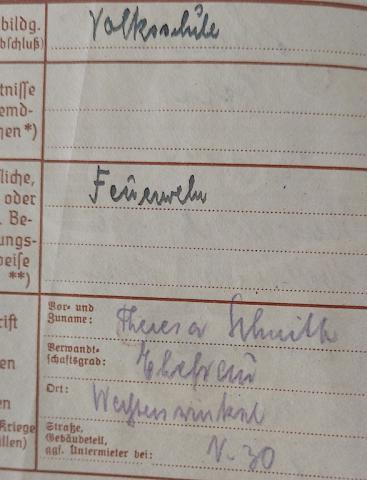 bildg. Volksschule
bschluß)
tnisse
emd-
hen*)
liche,
oder Feuerwehr
. Be-
ungs-
peise
**)
Vor- und
Zuname: Theresa
rift
Verwandt-
schaftsgrad: Ehefrau
en
Ort:
en
Kriege Straße,
illen) Gebäudeteil,
ggf. Untermieter bei: N. 30